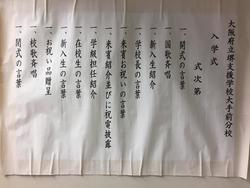 大阪府立堺支援学校大手前分校
入学式　式次第
一、開式の言葉
一、国歌斉唱
一、新入生紹介
一、学校長の言葉
一、来賓お祝いの言葉
一、来賓紹介並びに祝電披露
一、学級担任紹介
一、在校生の言葉
一、新入生の言葉
一、お祝い品贈呈
一、校歌斉唱
一、閉式の言葉